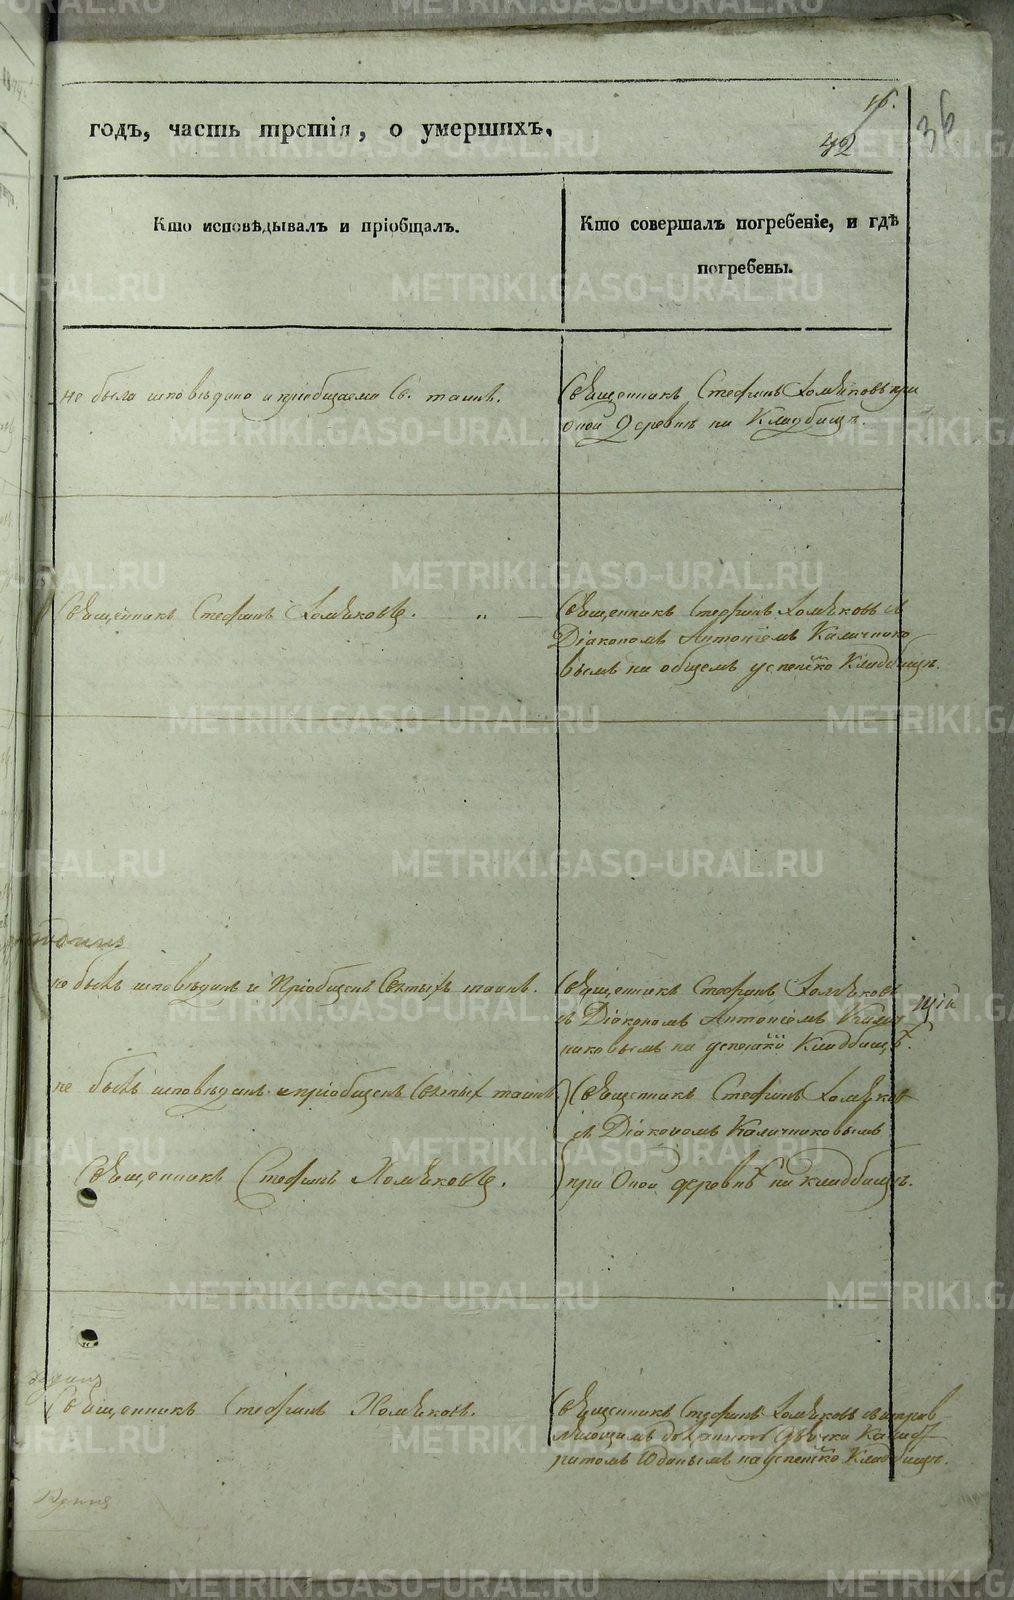 16.
42
36
годъ, часть третія, о умершихъ.
Кто исповѣдывалъ и пріобщалъ.
Кто совершалъ погребеніе, и гдѣ
погребены.
не была исповѣдана и пріобщаема Св. таинъ.
Священникъ Стефанъ Хомяковъ при
оной Деревнѣ на Кладбищѣ.
Священникъ Стефанъ Хомяковъ.
Священникъ Стефанъ Хомяковъ съ
Діакономъ Антоніемъ Калачнико
вымъ на общемъ успенско Кладбищѣ.
не былъ исповѣданъ и Пріобщенъ Святыхъ таинъ.
Священникъ Стефанъ Хомяковъ
съ Діакономъ Антоніемъ Калач
никовымъ на успенско Кладбищѣ.
не былъ исповѣданъ и пріобщенъ Святых таинъ
Священникъ Стефанъ Хомяков
съ Діакономъ Калачниковымъ
Священникъ Стефанъ Хомяковъ.
при Оной деревнѣ на кладбищѣ.
Священникъ Стефанъ Хомяковъ.
Священникъ Стефанъ Хомяковъ съ исправ
ляющимъ должность
на успенско Кладбищѣ.
METRIKI.GASO-URAL.RU